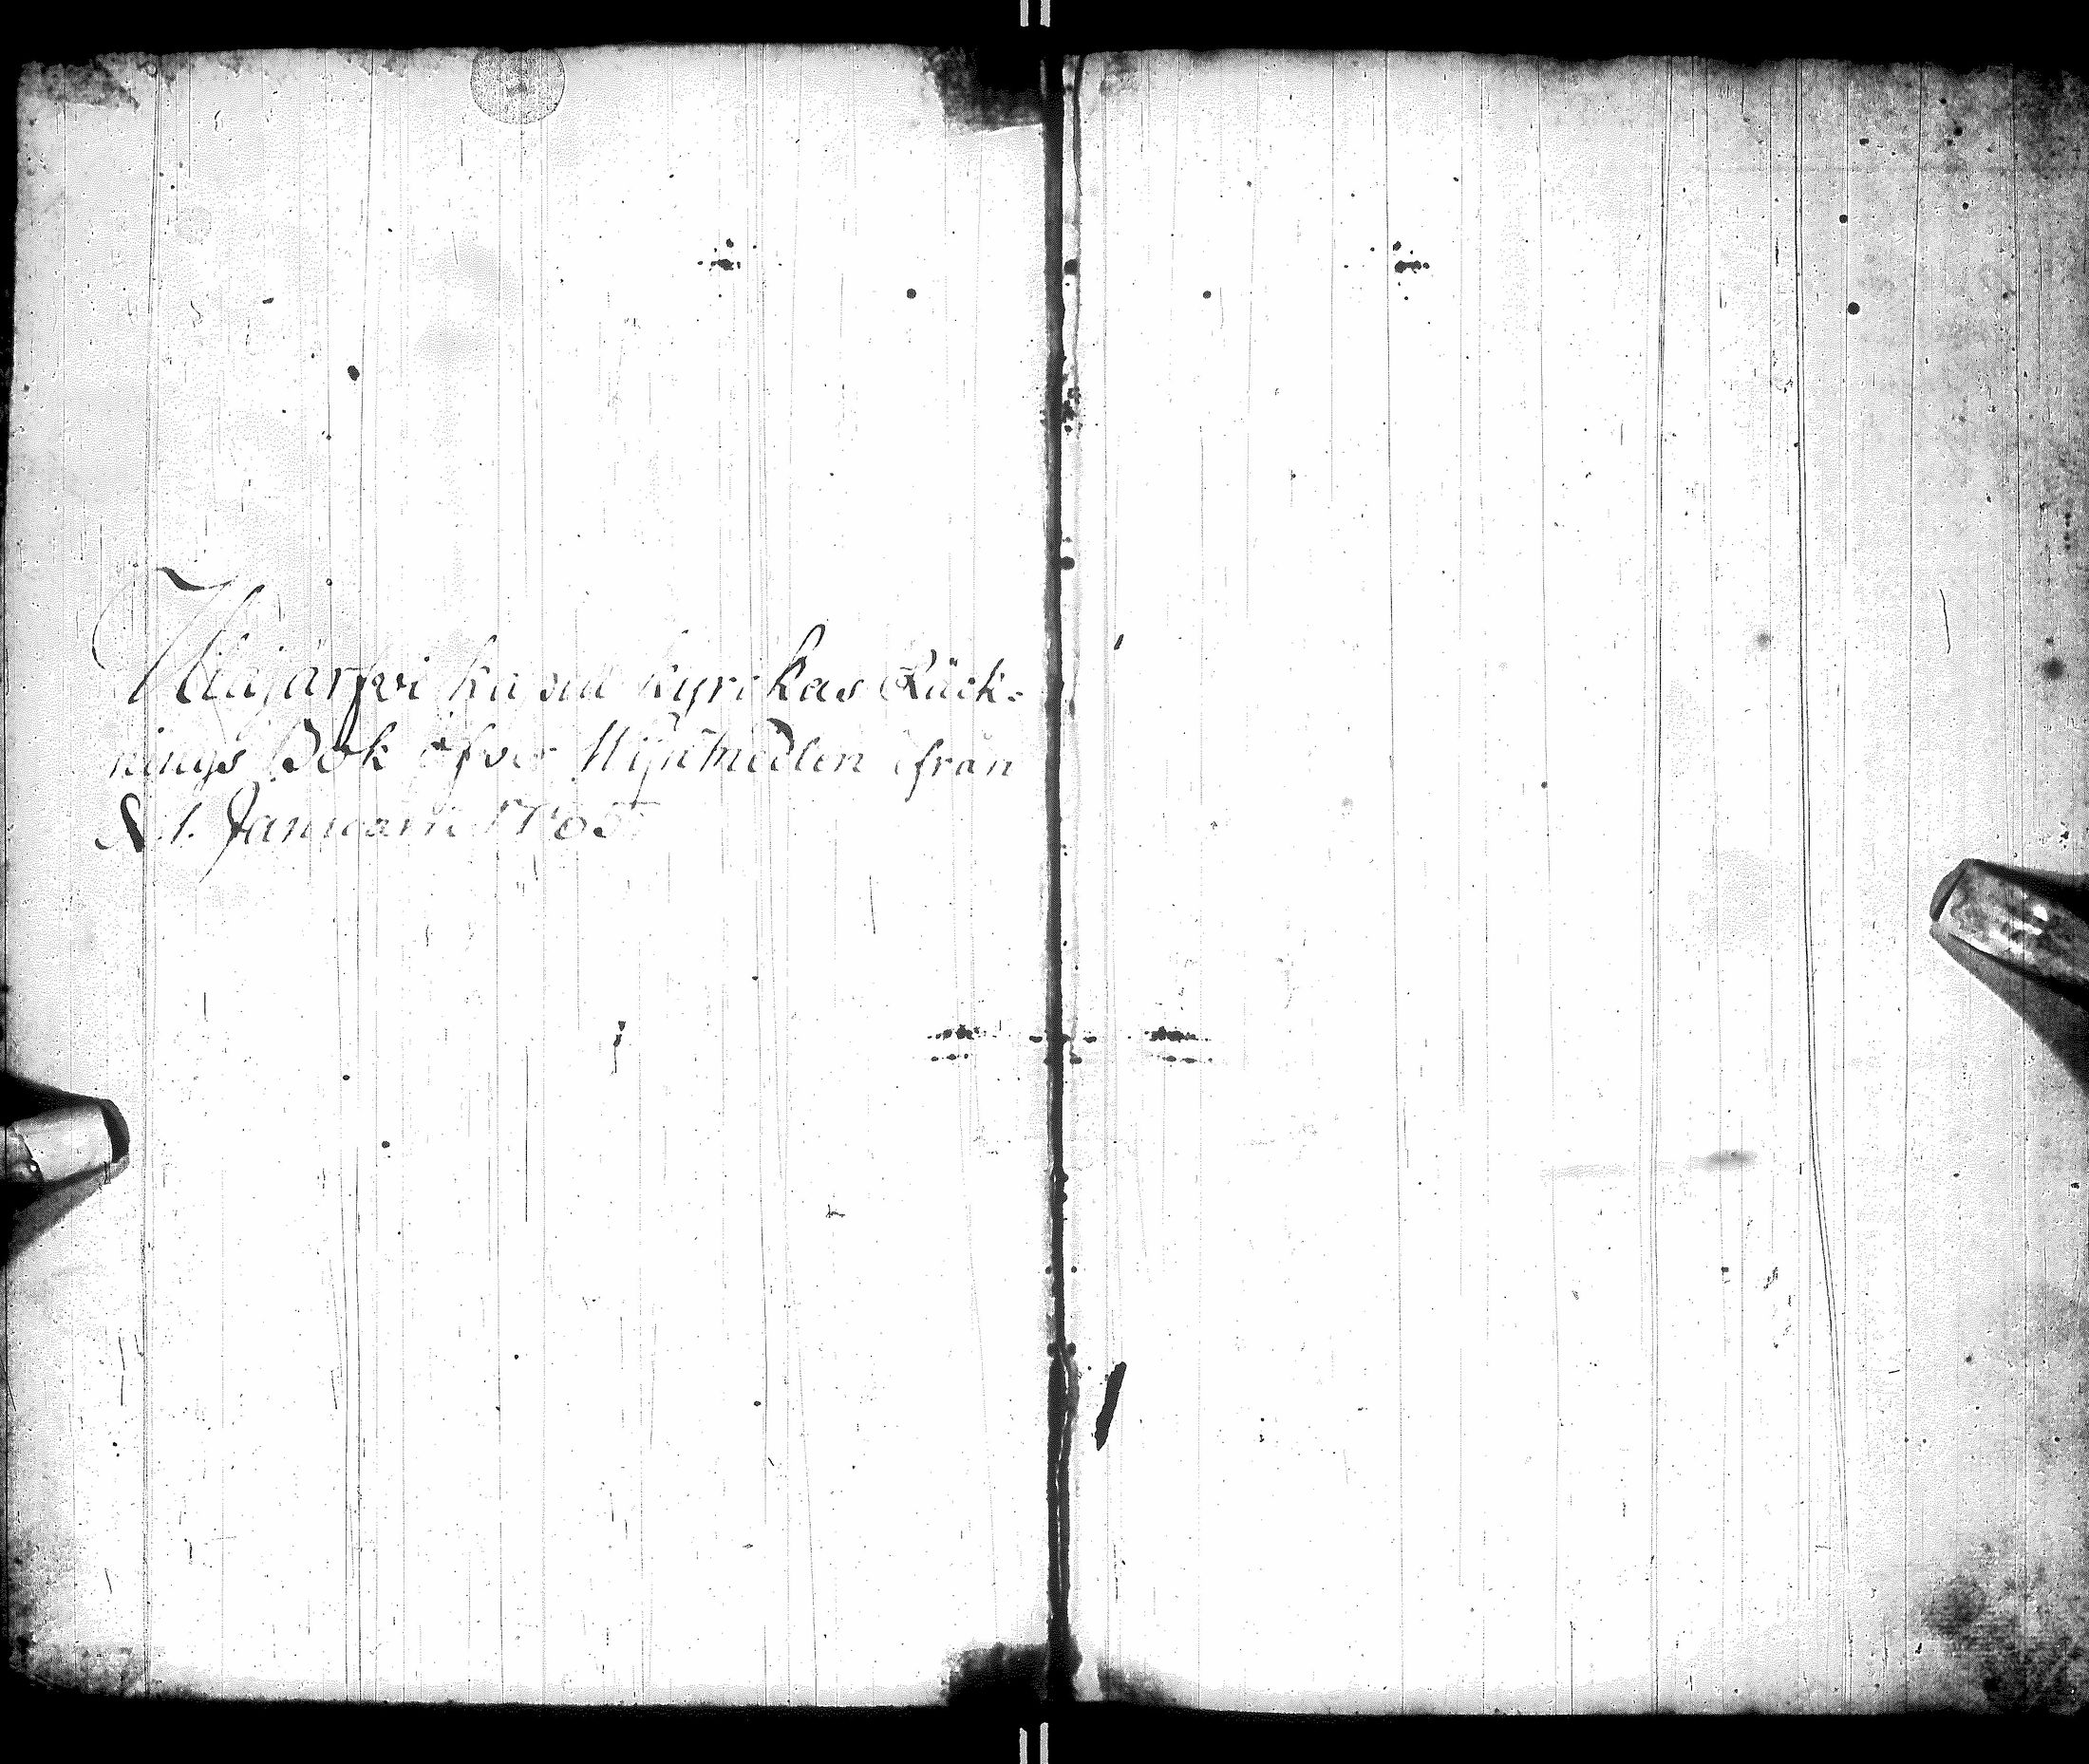 Ilajärfvi kapell kyrckas Räck-
nings Bok öfver Wijnmedlen ifrån
d. 1. Januarii 1765